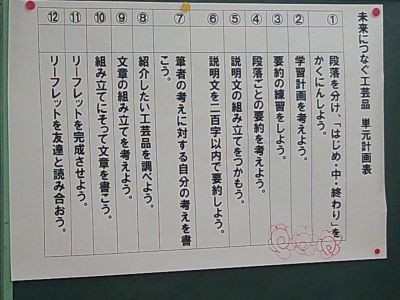 未来につなぐ工芸品　単元計画表
① 段落を分け、「はじめ・中・終わり」を
かくにんしよう。
② 学習計画を考えよう。
③ 要約の練習をしよう。
④ 段落ごとの要約を考えよう。
⑤ 説明文の組み立てをつかもう。
⑥ 説明文を二百字以内で要約しよう。
⑦ 筆者の考えに対する自分の考えを書
こう。
⑧ 紹介したい工芸品を調べよう。
⑨ 文章の組み立てを考えよう。
⑩ 組み立てにそって文章を書こう。
⑪ リーフレットを完成させよう。
⑫ リーフレットを友達と読み合おう。